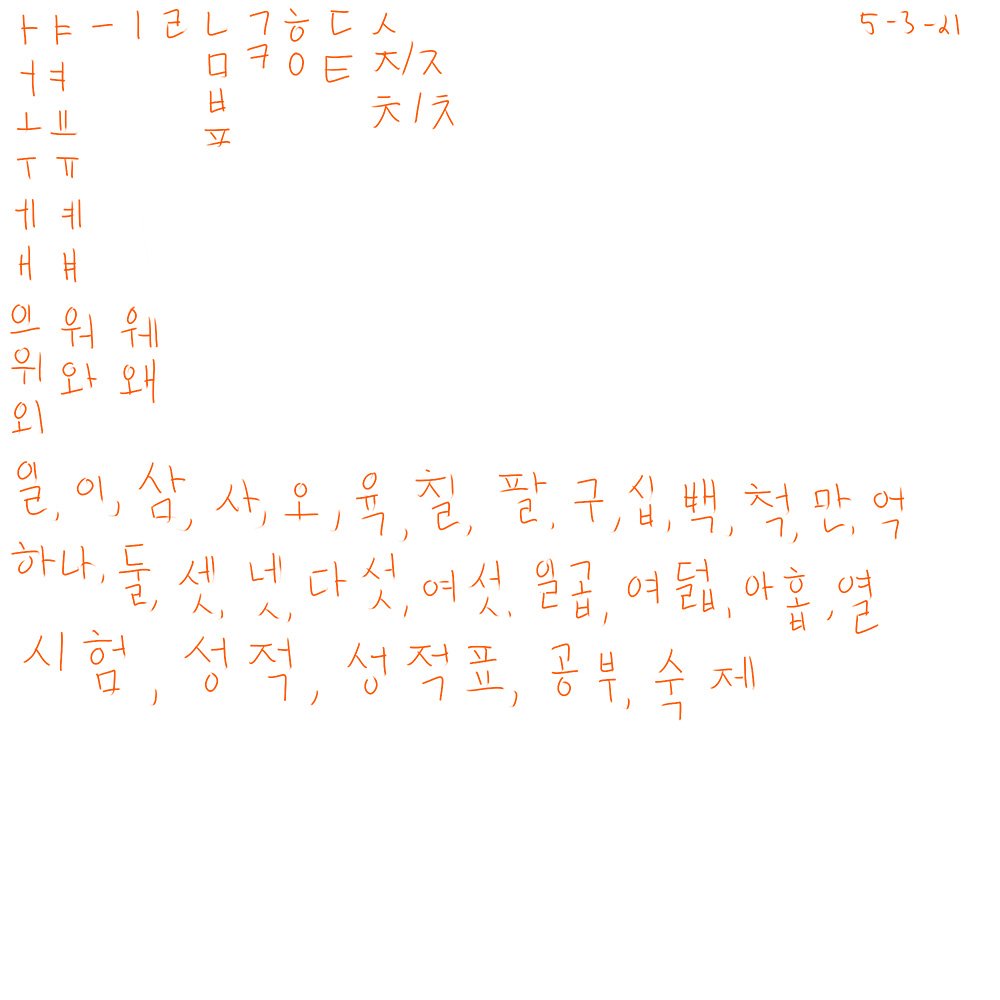 ㅏ ㅑ ㅡ ㅣ ㄹ ㄴ ㄱ ㅎ ㄷ ㅅ 5-3-21
ㅓ ㅕ ㅁ ㅋ ㅇ ㅌ ㅈ/ㅈ
ㅂ ㅊ/ㅊ
ㅗ ㅛ ㅍ
ㅜ ㅠ
ㅔ ㅖ
ㅐ ㅒ
의 워 웨
위 와 왜
외
일, 이, 삼, 사, 오, 육, 칠, 팔, 구, 십, 백, 척, 만, 억
하나, 둘, 셋, 넷, 다섯, 여섯, 일곱, 여덟, 아홉, 열
시험, 성적, 성적표, 공부, 숙제